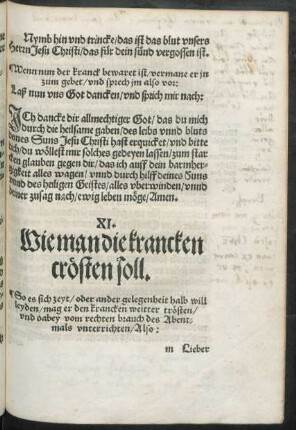 Nymb hin vnd trincke/das ist das blut vnsers
Herrn Jesu Christi/das für dein sünd vergossen ist.
Wenn nun der kranck bewaret ist/vermane er jn
zum gebet/vnd sprech jm also vor:
Laß nun vns Got dancken/vnd sprich mir nach:
ICh dancke dir allmechtiger Got/das du mich
durch die heilsame gaben/des leibs vnnd bluts
deines Suns Jesu Christi hast erquicket/vnd bitte
dich/du wöllest mir solches gedeyen lassen/zum star
cken glauben gegen dir/das ich auff dein barmher-
tzigkeit alles wagen/vnnd durch hilff deines Suns
vnnd des heiligen Geistes/alles vberwinden/vnnd
deiner zusag nach/ewig leben möge/Amen.
XI.
Wie man die krancken
trösten soll.
So es sich zeyt/oder ander gelegenheit halb will
leyden/mag er den krancken weitter trösten/
vnd dabey vom rechten brauch des Abent-
mals vnterrichten/Also:
m Lieber